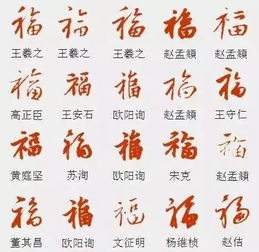 福 福 福 福 福
王羲之 王羲之 王羲之 赵孟頫 赵孟頫
福 福 福 福 福
高正臣 王安石 欧阳询 赵孟頫 王守仁
福 福 福 福 福
黄庭坚 苏洵 欧阳询 朱克 赵孟頫
福 福 福 福 福
董其昌 欧阳询 文征明 杨维桢 赵佶